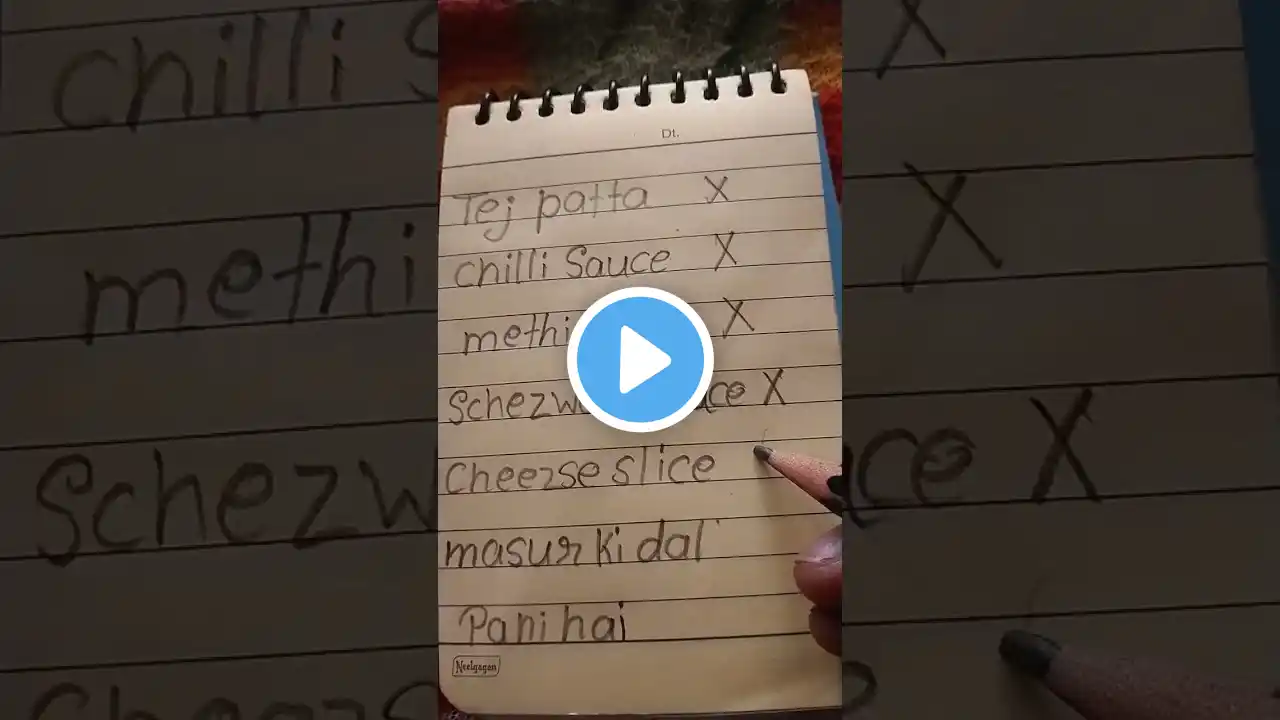 Dt.
Tej patta X
chilli Sauce X
methi X
Schezw ce X
Cheezse slice
masur ki dal
Pani hai
Neelgagan